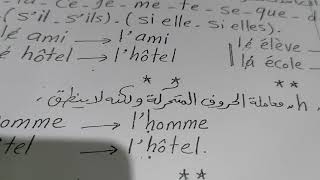 la - ce - je - me - te - se - que - d
(s'il - s'ils) - (si elle - si elles).
le ami → l'ami
le hôtel → l'hôtel
le élève
la école
h، معاملة الحروف المتحركة ولكنه لا ينطق،
homme → l'homme
tel → l'hôtel.